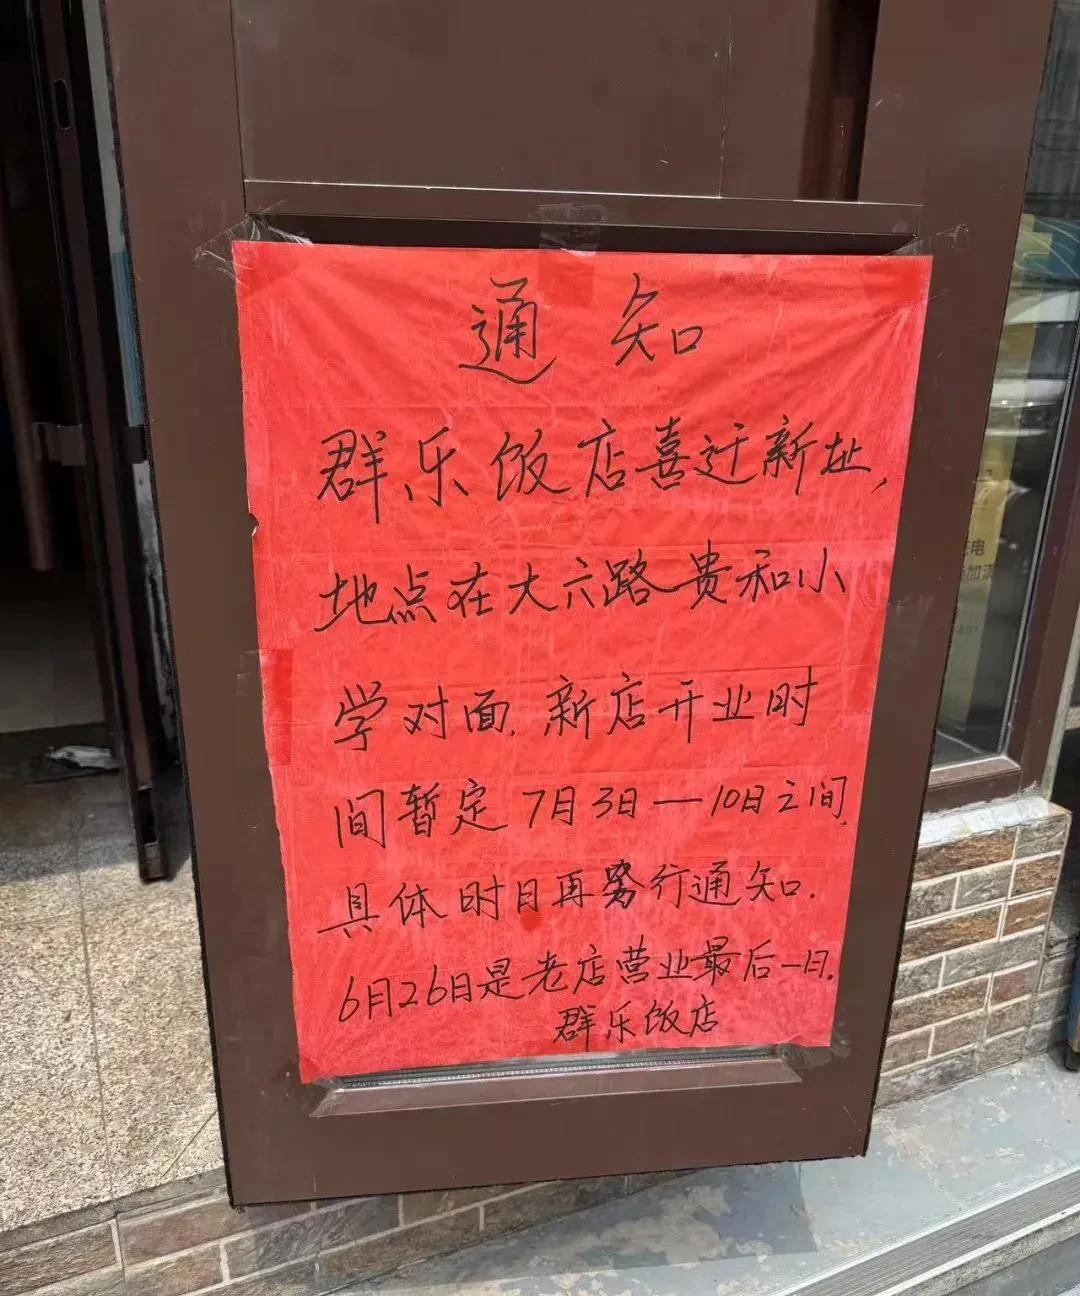 通知
群乐饭店喜迁新址,
地点在大六路贵和小
学对面.新店开业时
间暂定7月3日—10日之间,
具体时日再另行通知.
6月26日是老店营业最后一日.
群乐饭店